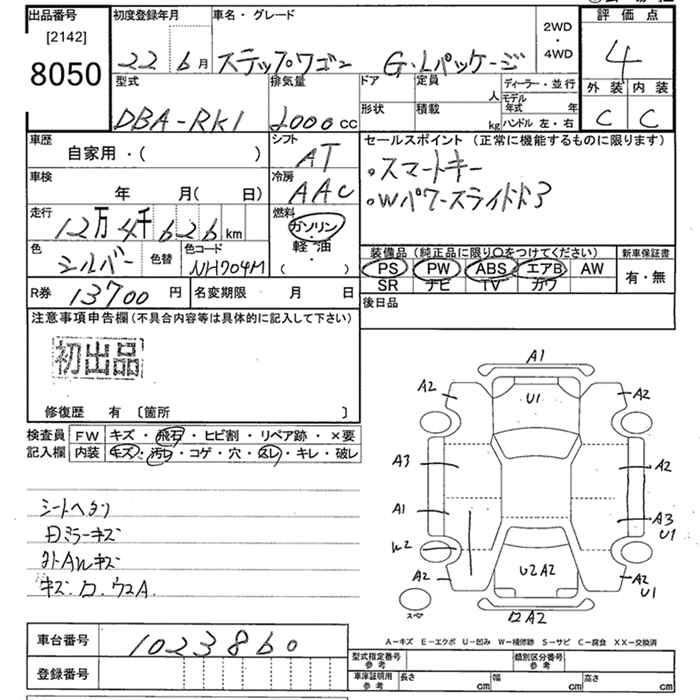 出品番号
[2142]
8050
初度登録年月
22 6月
車名・グレード
ステップワゴン G・Lパッケージ
2WD
・
4WD
評価点
4
外装 内装
C C
型式
DBA-RK1
排気量
2000cc
ドア
形状
定員
人
積載
kg
ディーラー・並行
モデル年式 年
ハンドル 左・右
車歴
自家用・( )
シフト
AT
車検
年 月( 日)
冷房
AAC
走行
12万4千626km
燃料
ガソリン・
軽油・
( )
色
シルバー
色替
色コード
NH704M
R券 13700円
名変期限 月 日
セールスポイント (正常に機能するものに限ります)
・スマートキー
・Wパワースライドドア
装備品 (純正品に限り○をつけてください)
PS PW ABS エアB AW
SR ナビ TV カワ
新車保証書
有・無
後日品
注意事項申告欄 (不具合内容等は具体的に記入して下さい)
初出品
修復歴 有 [箇所 ]
検査員
記入欄
FW キズ・飛石・ヒビ割・リペア跡・×要
内装 キズ・汚レ・コゲ・穴・スレ・キレ・破レ
シートヘタリ
日ミラーキズ
ホトAWキズ
キズ.ロ.ウスA.
A1
A2 U1 A2
A3 A2
A1 A3
U1
W2
A2 U2 A2 A2
U1
スペア
ロA2
A-キズ E-エクボ U-凹み W-補修跡 S-サビ C-腐食 XX-交換済
車台番号 1023860
登録番号
型式指定番号
参考
類別区分番号
参考
車庫証明用
参考
長さ cm 幅 cm 高さ cm